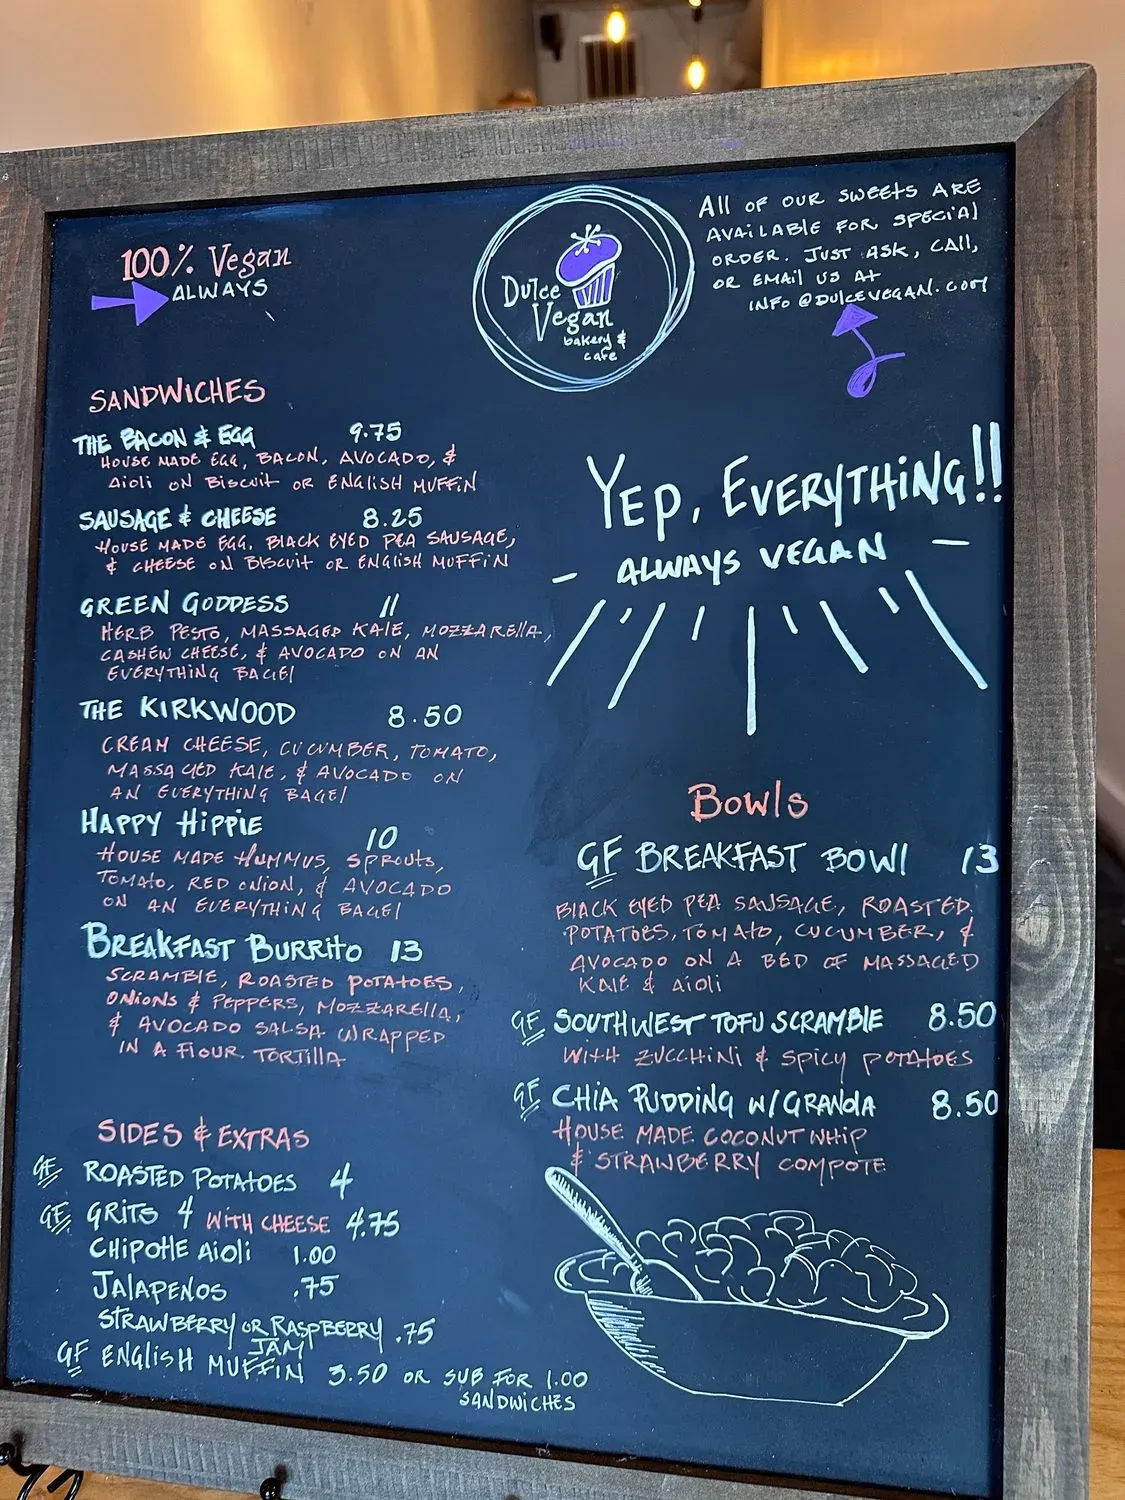 100% Vegan
ALWAYS
Dulce
Vegan
bakery &
cafe
All OF OUR SWEETS ARE
AVAILABLE FOR SPECIAL
ORDER. JUST ASK, CALL,
OR EMAIL US AT
INFO @DULCEVEGAN.COM
SANDWICHES
THE BACON & EGG 9.75
HOUSE MADE EGG, BACON, AVOCADO, &
AIOLI ON BISCUIT OR ENGLISH MUFFIN
SAUSAGE & CHEESE 8.25
HOUSE MADE EGG. BLACK EYED PEA SAUSAGE,
& CHEESE ON BISCUIT OR ENGLISH MUFFIN
GREEN GODDESS 11
HERB PESTO, MASSAGED KALE, MOZZARELLA,
CASHEW CHEESE, & AVOCADO ON AN
EVERYTHING BAGEL
THE KIRKWOOD 8.50
CREAM CHEESE, CUCUMBER, TOMATO,
MASSAGED KALE, & AVOCADO ON
AN EVERYTHING BAGEL
HAPPY HIPPIE 10
HOUSE MADE HUMMUS, SPROUTS,
TOMATO, RED ONION, & AVOCADO
ON AN EVERYTHING BAGEL
BREAKFAST BURRITO 13
SCRAMBLE, ROASTED POTATOES,
ONIONS & PEPPERS, MOZZARELLA,
& AVOCADO SALSA WRAPPED
IN A FLOUR TORTILLA
SIDES & EXTRAS
GF ROASTED POTATOES 4
GF GRITS 4 WITH CHEESE 4.75
CHIPOTLE AIOLI 1.00
JALAPENOS .75
STRAWBERRY OR RASPBERRY .75
JAM
GF ENGLISH MUFFIN 3.50 OR SUB FOR 1.00
SANDWICHES
YEP, EVERYTHING!!
ALWAYS VEGAN
Bowls
GF BREAKFAST BOWL 13
BLACK EYED PEA SAUSAGE, ROASTED
POTATOES, TOMATO, CUCUMBER, &
AVOCADO ON A BED OF MASSAGED
KALE & AIOLI
GF SOUTHWEST TOFU SCRAMBLE 8.50
WITH ZUCCHINI & SPICY POTATOES
GF CHIA PUDDING W/GRANOLA 8.50
HOUSE MADE COCONUT WHIP
& STRAWBERRY COMPOTE